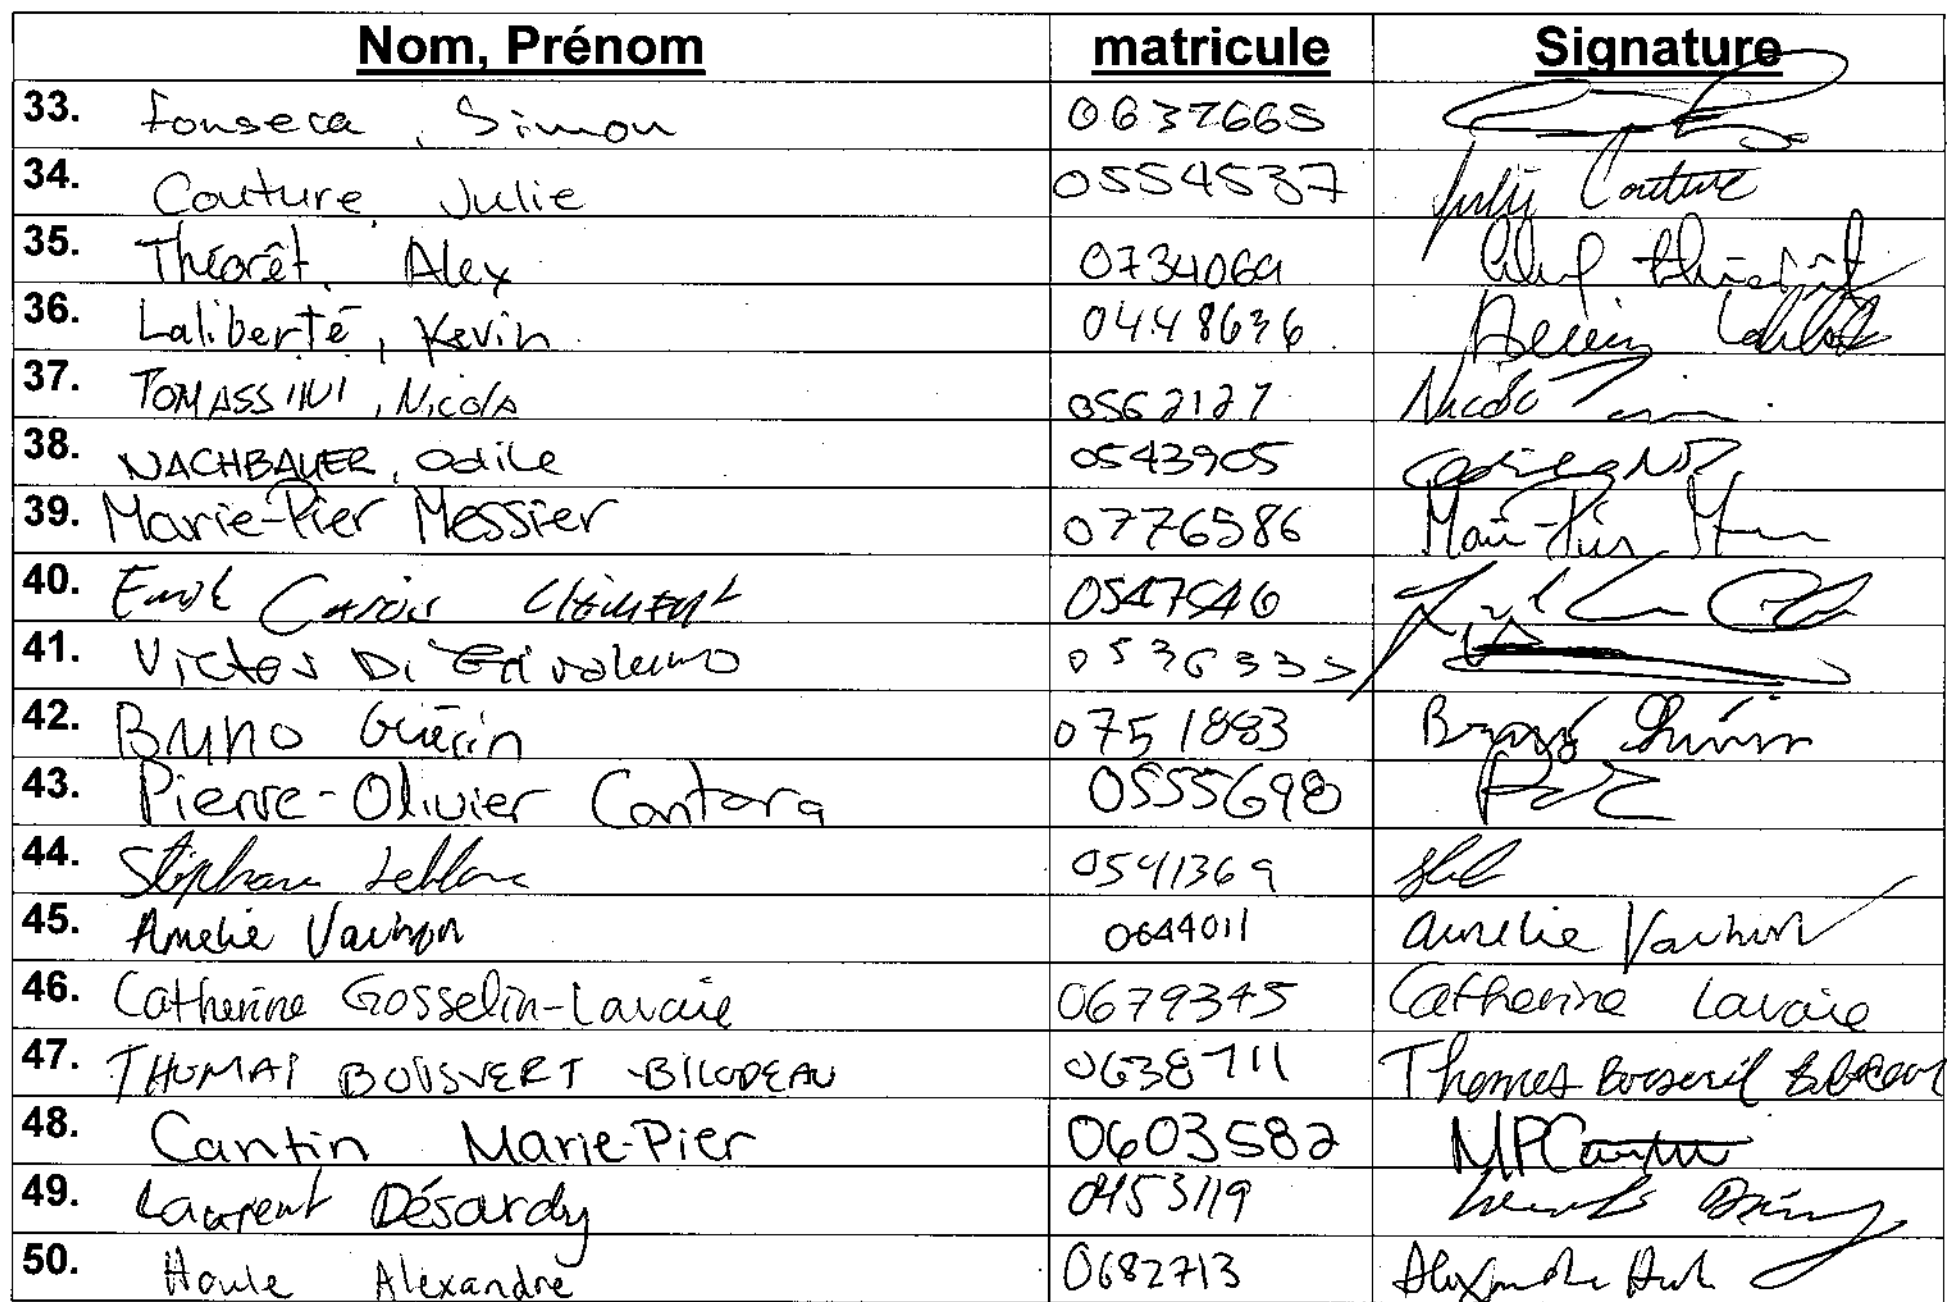 Nom, Prénom matricule Signature
33. Fonseca, Simon 0637665
34. Couture, Julie 0554537 Julie Couture
35. Théorêt, Alex 0734069 Alex Théorêt
36. Laliberté, Kevin 0448636 Kevin Laliberté
37. TOMASSINI, Nicola 0562127 Nicola
38. NACHBAUER, Odile 0543905 Odile
39. Marie-Pier Messier 0776586 Marie-Pier
40. Clément 0547546
41. Victor Di 053633
42. Bruno Guérin 0751883 Bruno Guérin
43. Pierre-Olivier Cantara 0555698
44. Stéphane Leblanc 0541369
45. Amelie Vachon 0644011 Amelie Vachon
46. Catherine Gosselin-Lavoie 0679345 Catherine Lavoie
47. THOMAS BOISVERT-BILODEAU 0638711 Thomas Boisvert Bilodeau
48. Cantin Marie-Pier 0603582 MPCantin
49. Laurent Désardy 0453119
50. Houle Alexandre 0682713 Alexandre